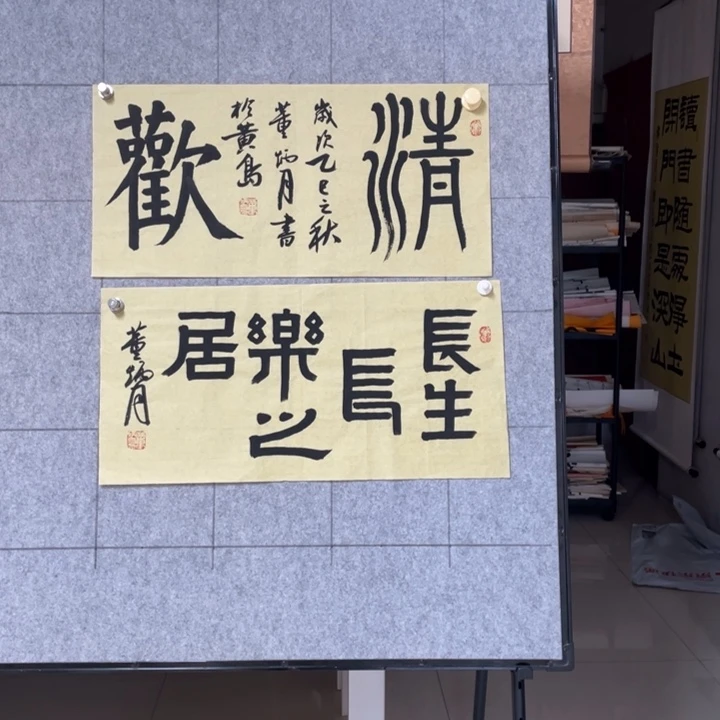 清歡
歲次乙巳之秋
董炳月書
於黃島
長生
長
樂之
居
董炳月
讀書随處淨土
閉門即是深山